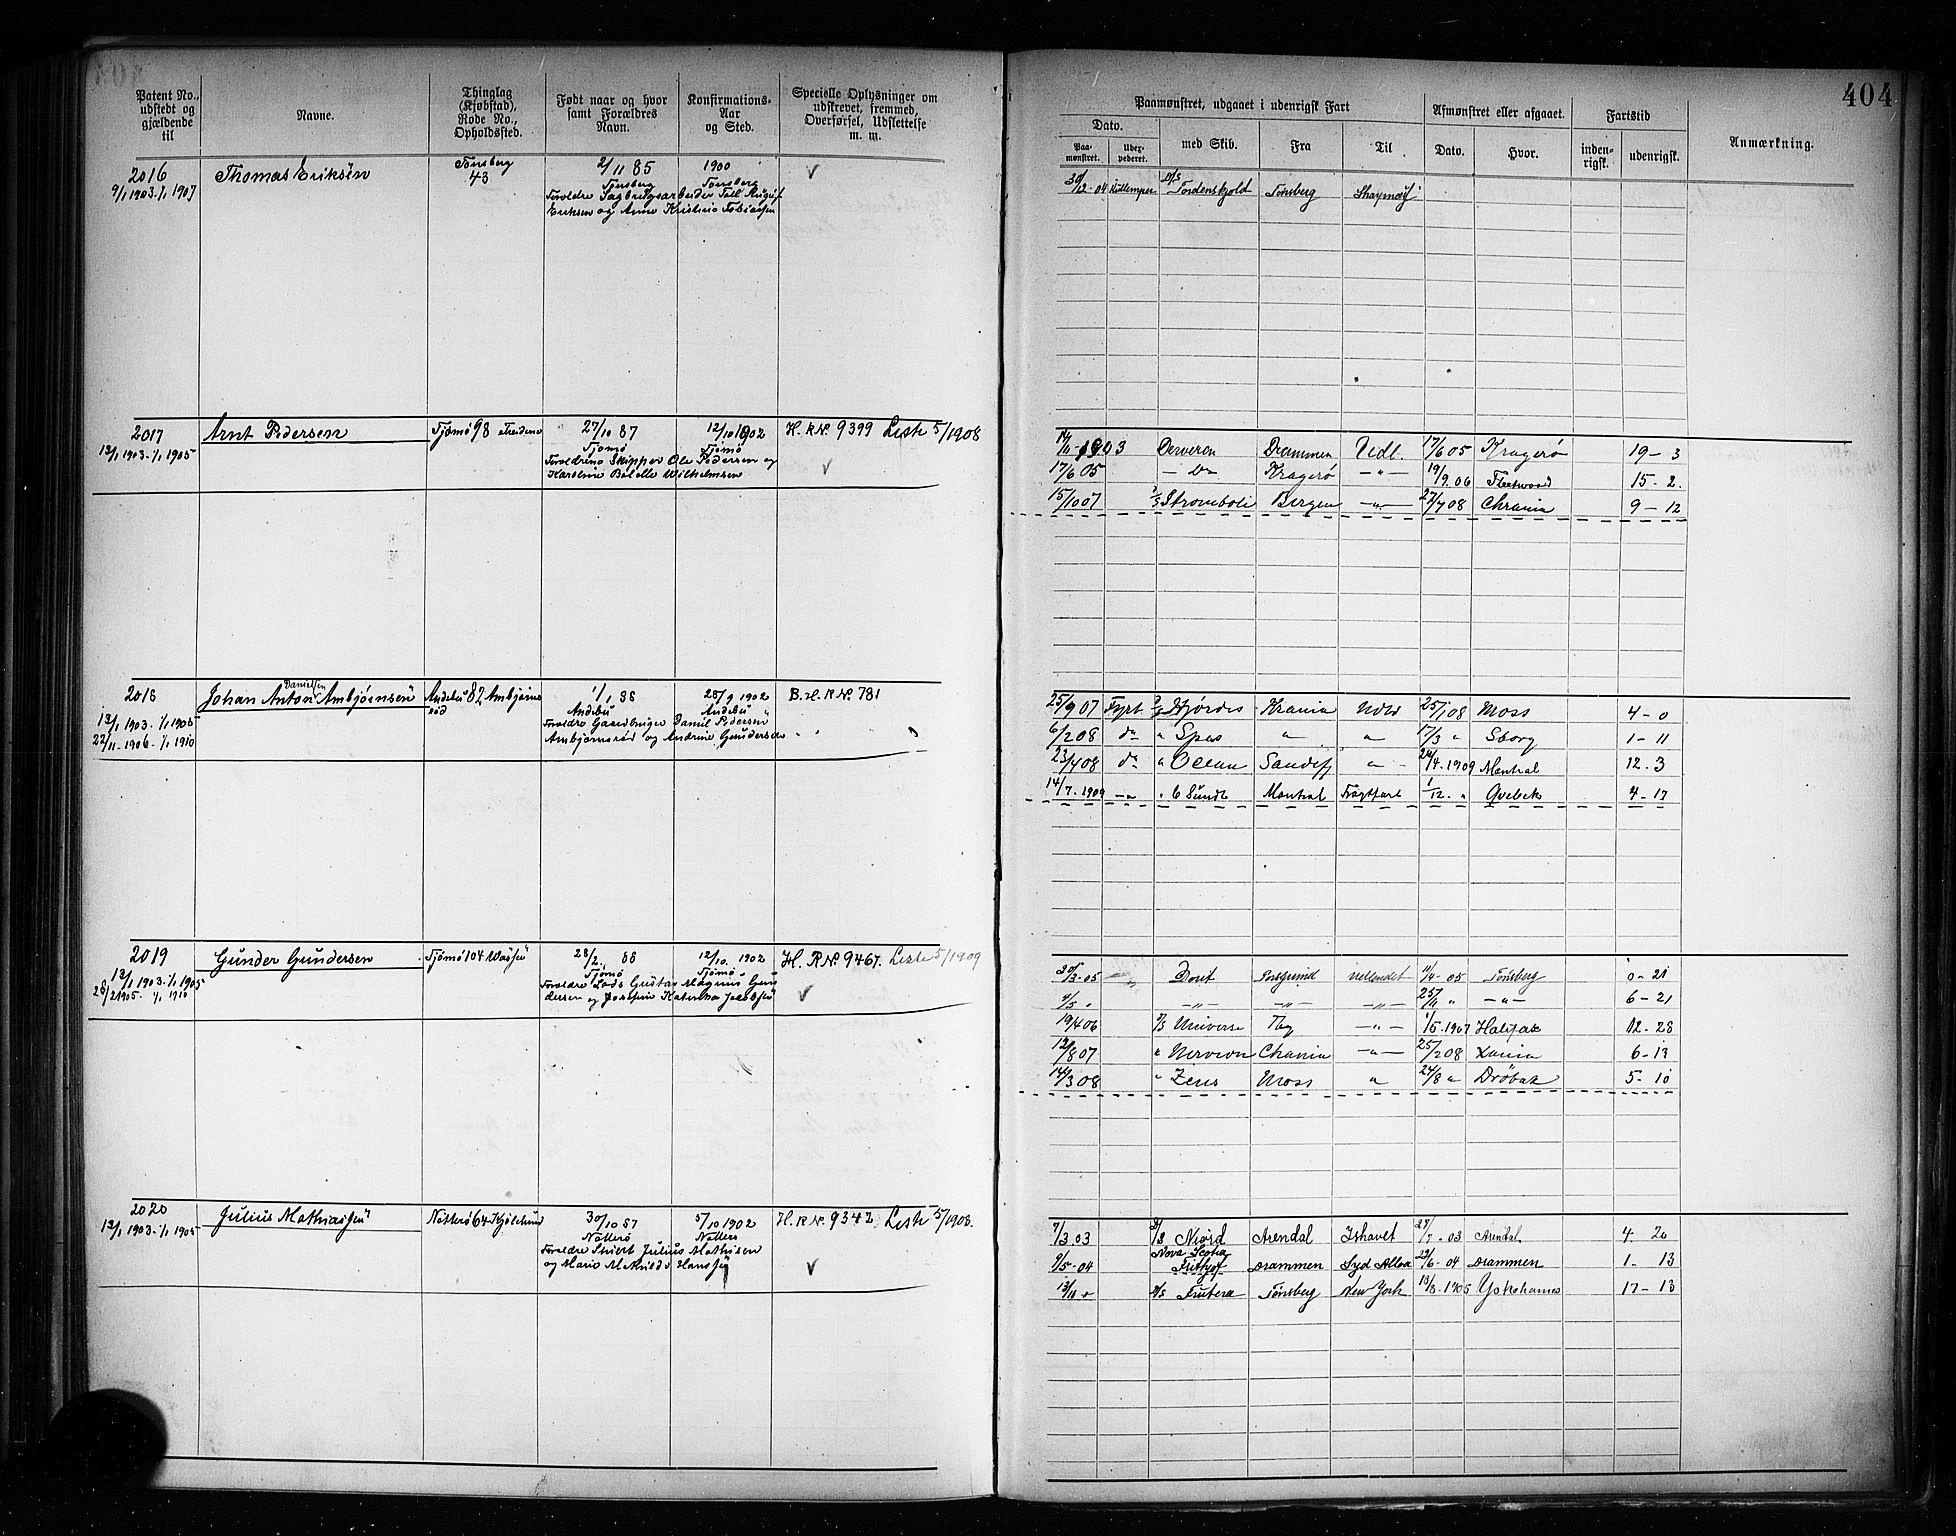 404
Patent No., udstedt og gjældende til
Navne.
Thinglag (Kjøbstad), Rode No., Opholdssted.
Født naar og hvor samt Forældres Navn.
Konfirmations-Aar og Sted.
Specielle Oplysninger om udskrevet, fremmed, Overførsel, Udslettelse m. m.
Paamønstret, udgaaet i udenrigsk Fart
Afmønstret eller afgaaet.
Fartstid
Anmærkning.
Dato.
Paamønstret.
med Skib.
Fra
Til
Dato.
Hvor.
indenrigsk.
udenrigsk.
2016
9/1 1903-1/1 1907
Thomas Eriksen
Tønsberg
43
2/11 85
Tønsberg
1900
Tønsberg
Forældre Sagbrugsarbeider
Eriksen og Anne Kristine Tobiassen
30/12-04 D/S Tordenskjold Tønsberg
2017
12/1 1903-1/1 1905
Arnt Pedersen
Tjømø 98
27/10 87
Tjømø
12/10 1902
Tjømø
Forældrene Skipper Ole Pedersen og
Karoline Wilhelmsen
H. R No. 9399 Liste 5/1908
1903 Drammen Udl. 17/6 05 Kragerø 19-3
17/6 05 Do Kragerø -"- 19/9 06 Fleetwood 15-2.
15/10 07 Stromboli Bergen -"- 27/7 08 Chrania 9-12
2018
12/1 1903-1/1 1905
22/11-1906-1/1 1910
Danielsen
Johan Anton Ambjørnsen
Andebu 82 Ambjørnsrød
1/1 88
Andebu
28/9 1902
Andebu
Forældre Gaardbruger Daniel Pedersen
Ambjørnsrød og Andrine Gundersen
B. H. R No. 781
25/9 07 Fyrb Hjørdis Krania Udld 25/1 08 Moss 4-0
6/2 08 do " Spes " " 17/3 " Sborg 1-11
23/4 08 do " Ocean Sandefj " 24/4. 1909 Montral 12.3
14/7. 1909 -"- Montral Fragtfart 1/12. " Qvebek 4-17
2019
12/1 1903-1/1 1905
28/2 1905-1/1 1910
Gunder Gundersen
Tjømø 104
28/2. 88
Tjømø
12/10. 1902
Tjømø
Forældre Lods Gustav Magnus Gundersen og Josefine Katinka Jacobsen
H. R No. 9467. Liste 5/1909
30/3-05 Doret Porsgrund udlandet 11/4-05 Tønsberg 0-21
4/5 " -"- -"- -"- 25/11 " -"- 6-21
19/4 06 Universe Tbg -"- 1/5-1907 Halifax 12-28
12/8 07 Chania -"- 25/2 08 Xania 6-13
14/3 08 " Zeus Moss " 24/8 " Drøbak 5-10
2020
12/1 1903-1/1 1905
Julius Mathiassen
Nøtterø 64 Kjølelund
30/10 87
Nøtterø
5/10 1902
Nøtterø
Forældre Julius Mathisen
og Marie Mathilde Hanssen
H. R No. 9342 Liste 5/1908.
7/3 03 Njord Arendal Ishavet 27/7-03 Arendal 4 20
9/5-04 Nova Scotia Frithjof Drammen 22/6-04 Drammen 1-13
13/11 " Tønsberg New York 13/8-1905 Yokohama 17-13